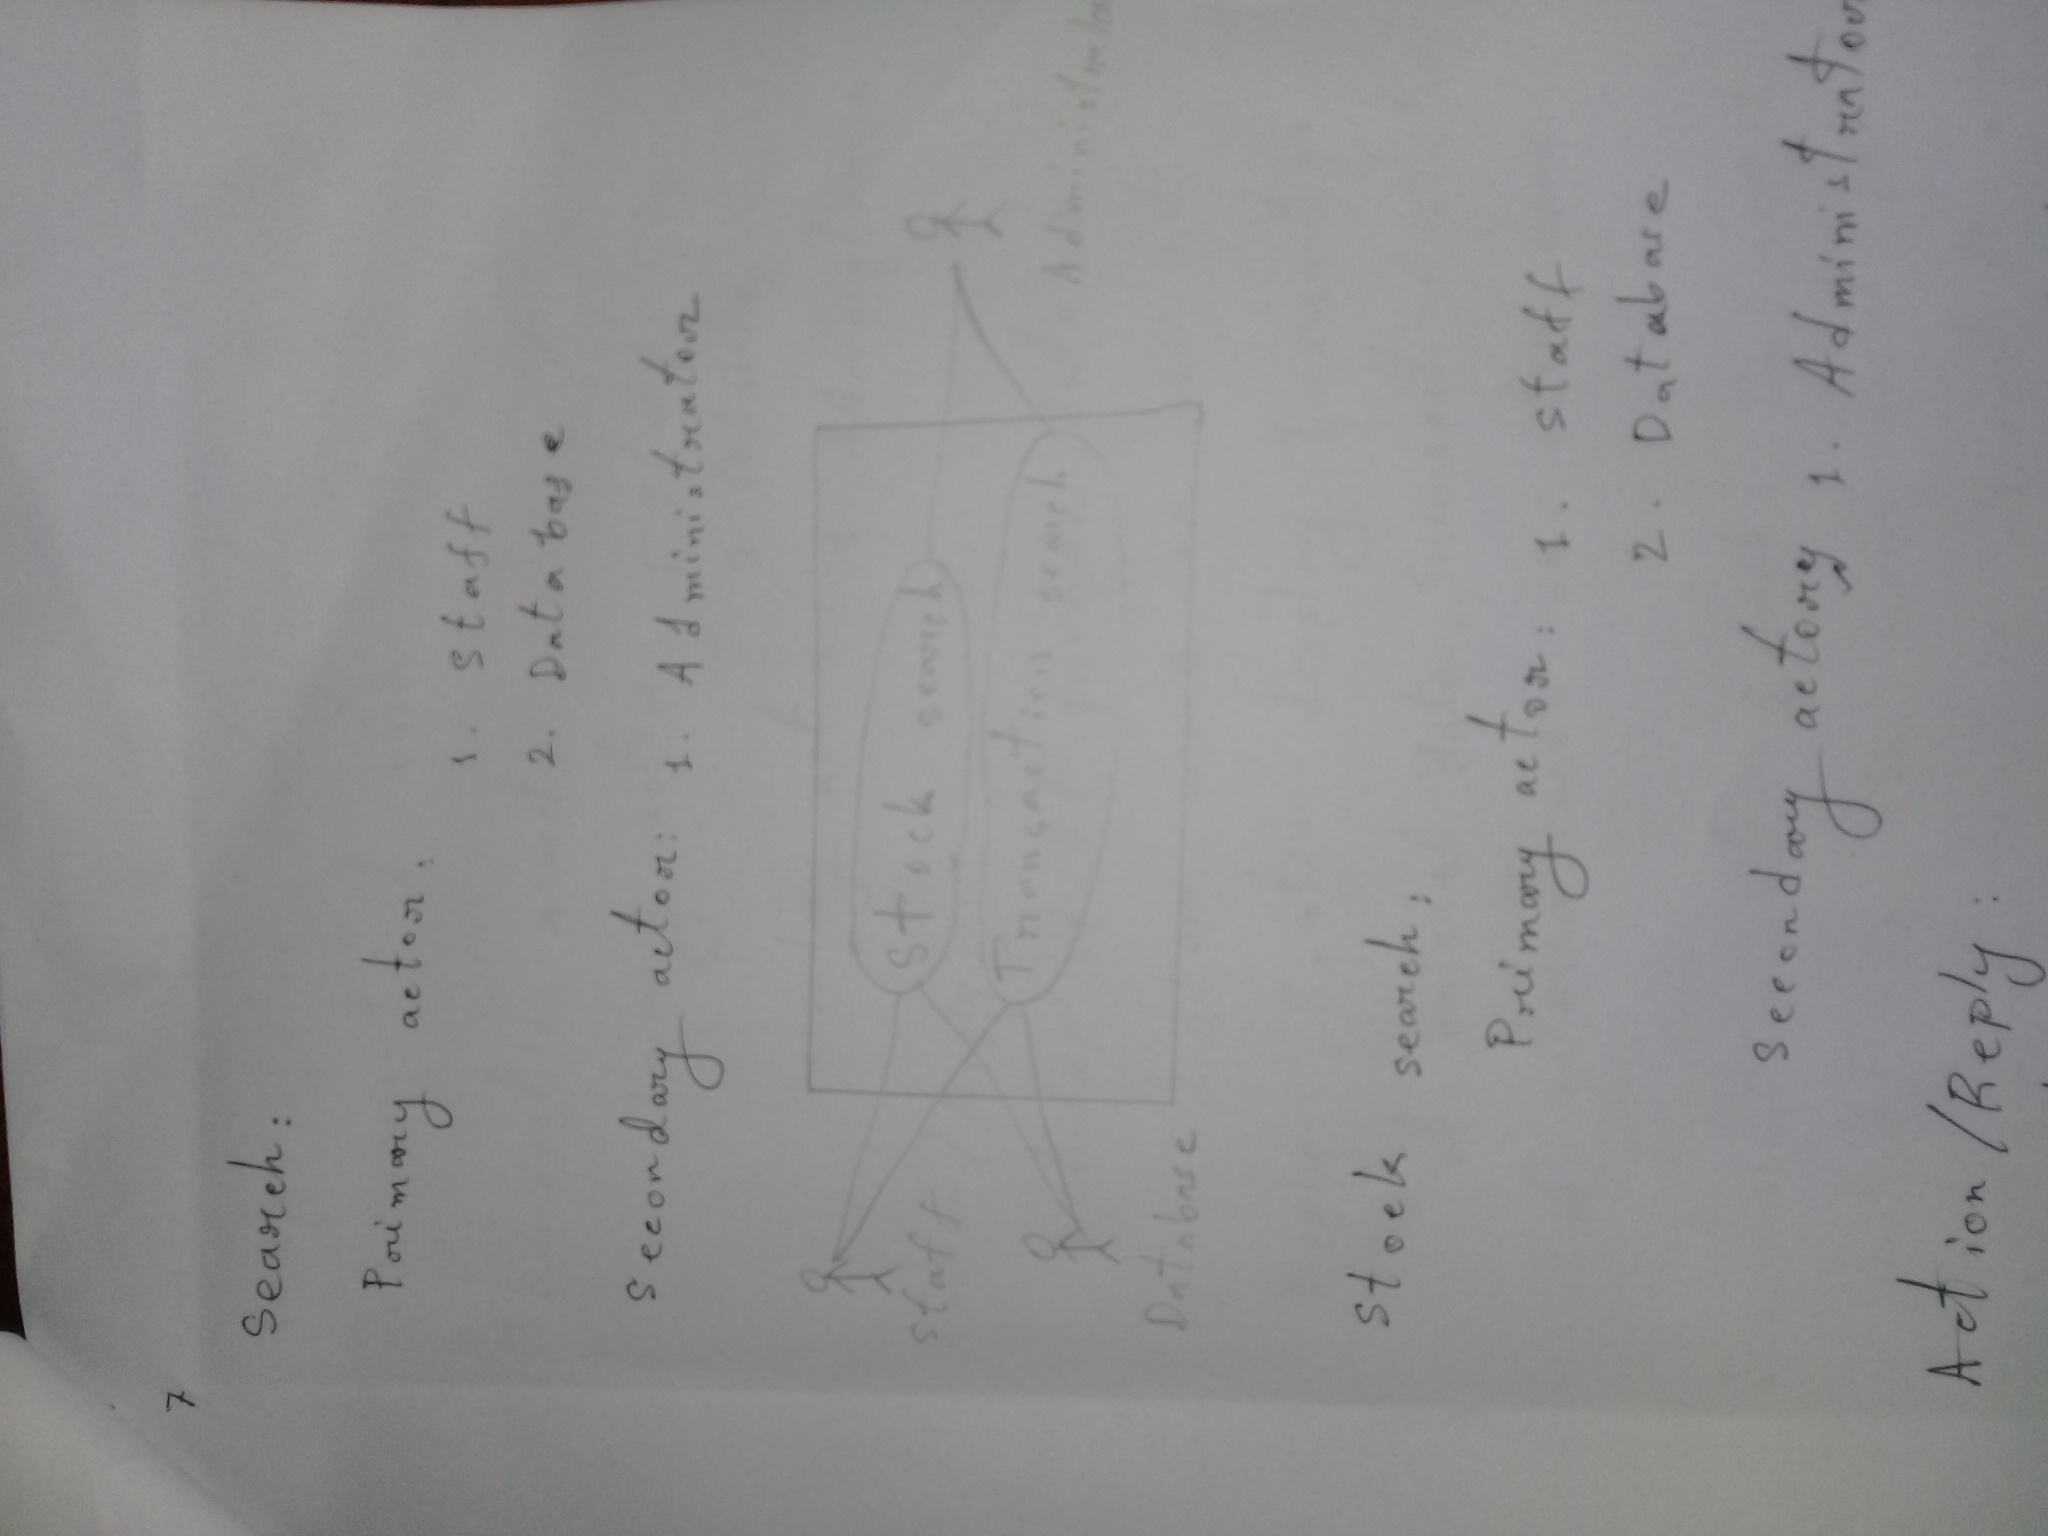 7
Search:
Primary actor:
1. Staff
2. Database
Secondary actor: 1. Administrator
Staff
Stock search
Transaction search
Administrator
Database
Stock search:
Primary actor: 1. Staff
2. Database
Secondary actory 1. Administrator
Action/Reply: